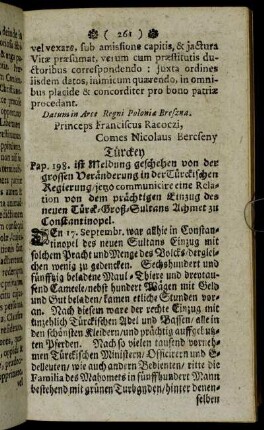 ( 261 )
vel vexare, sub amissione capitis, & jactura
Vitæ præsumat, verum cum præstitutis du-
ctoribus correspondendo : juxta ordines
iisdem datos, inimicum quærendo, in omni-
bus placide & concorditer pro bono patriæ
procedant.
Datum in Arce Regni Poloniæ Breszna.
Princeps Franciscus Racoczi,
Comes Nicolaus Bercseny
Türckey
Pag. 198. ist Meldung geschehen von der
grossen Veränderung in der Türckischen
Regierung/ jetzo communicire eine Rela-
tion von dem prächtigen Einzug des
neuen Türck-Groß-Sultans Achmet zu
Constantinopel.
DEn 17. Septembr. war allhie in Constan-
tinopel des neuen Sultans Einzug mit
solchem Pracht und Menge des Volcks/ derglei-
chen wenig zu gedencken. Sechshundert und
fünfftzig beladene Maul-Thiere und dreytau-
send Cameele/ nebst hundert Wägen mit Geld
und Gut beladen/ kamen etliche Stunden vor-
an. Nach diesem ware der rechte Einzug mit
unzehlich Türckischen Adel und Bassen/ alle in
den schönsten Kleidern/ und prächtig auffgebutz-
ten Pferden. Nach so vielen tausend vorneh-
men Türckischen Ministern/ Officirern und E-
delleuten/ wie auch andern Bedienten/ ritte die
Familia des Mahomets in fünffhundert Mann
bestehend mit grünen Turbanden/ hinter denen-
selben